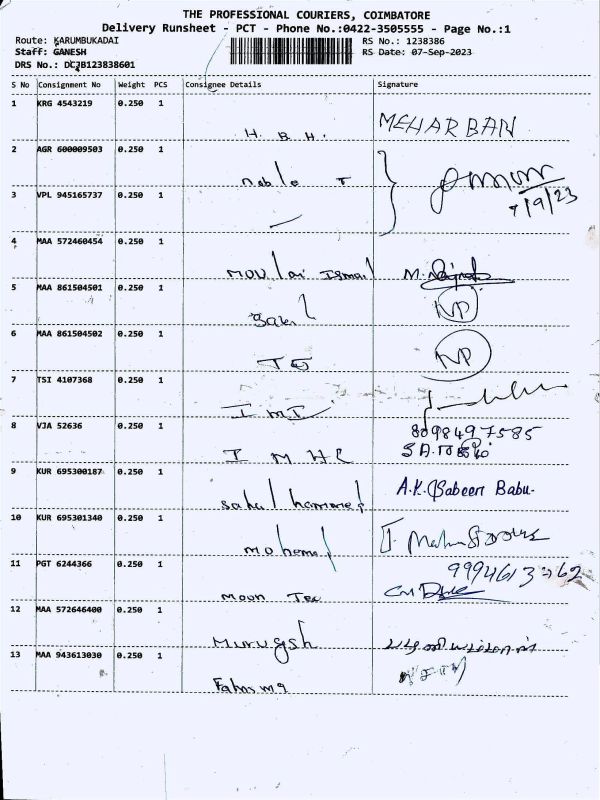 THE PROFESSIONAL COURIERS, COIMBATORE
Delivery Runsheet - PCT - Phone No.:0422-3505555 - Page No.:1
Route: KARUMBUKADAI RS No.: 1238386
Staff: GANESH RS Date: 07-Sep-2023
DRS No.: DCJB123838601
S No Consignment No Weight PCS Consignee Details Signature
1 KRG 4543219 0.250 1
H. B. H. MEHARBAN
2 AGR 600009503 0.250 1
Noble T
3 VPL 945165737 0.250 1
7/9/23
4 MAA 572460454 0.250 1
Moulai Ismail M.
5 MAA 861504501 0.250 1
NP
6 MAA 861504502 0.250 1
NP
7 TSI 4107368 0.250 1
I M I
8 VJA 52636 0.250 1
8098497585
I M H
9 KUR 695300187 0.250 1
A.K. Sabeer Babu.
10 KUR 695301340 0.250 1
Mohamed
11 PGT 6244366 0.250 1
Moon Tec
12 MAA 572646400 0.250 1
Murugesh
13 MAA 943613030 0.250 1